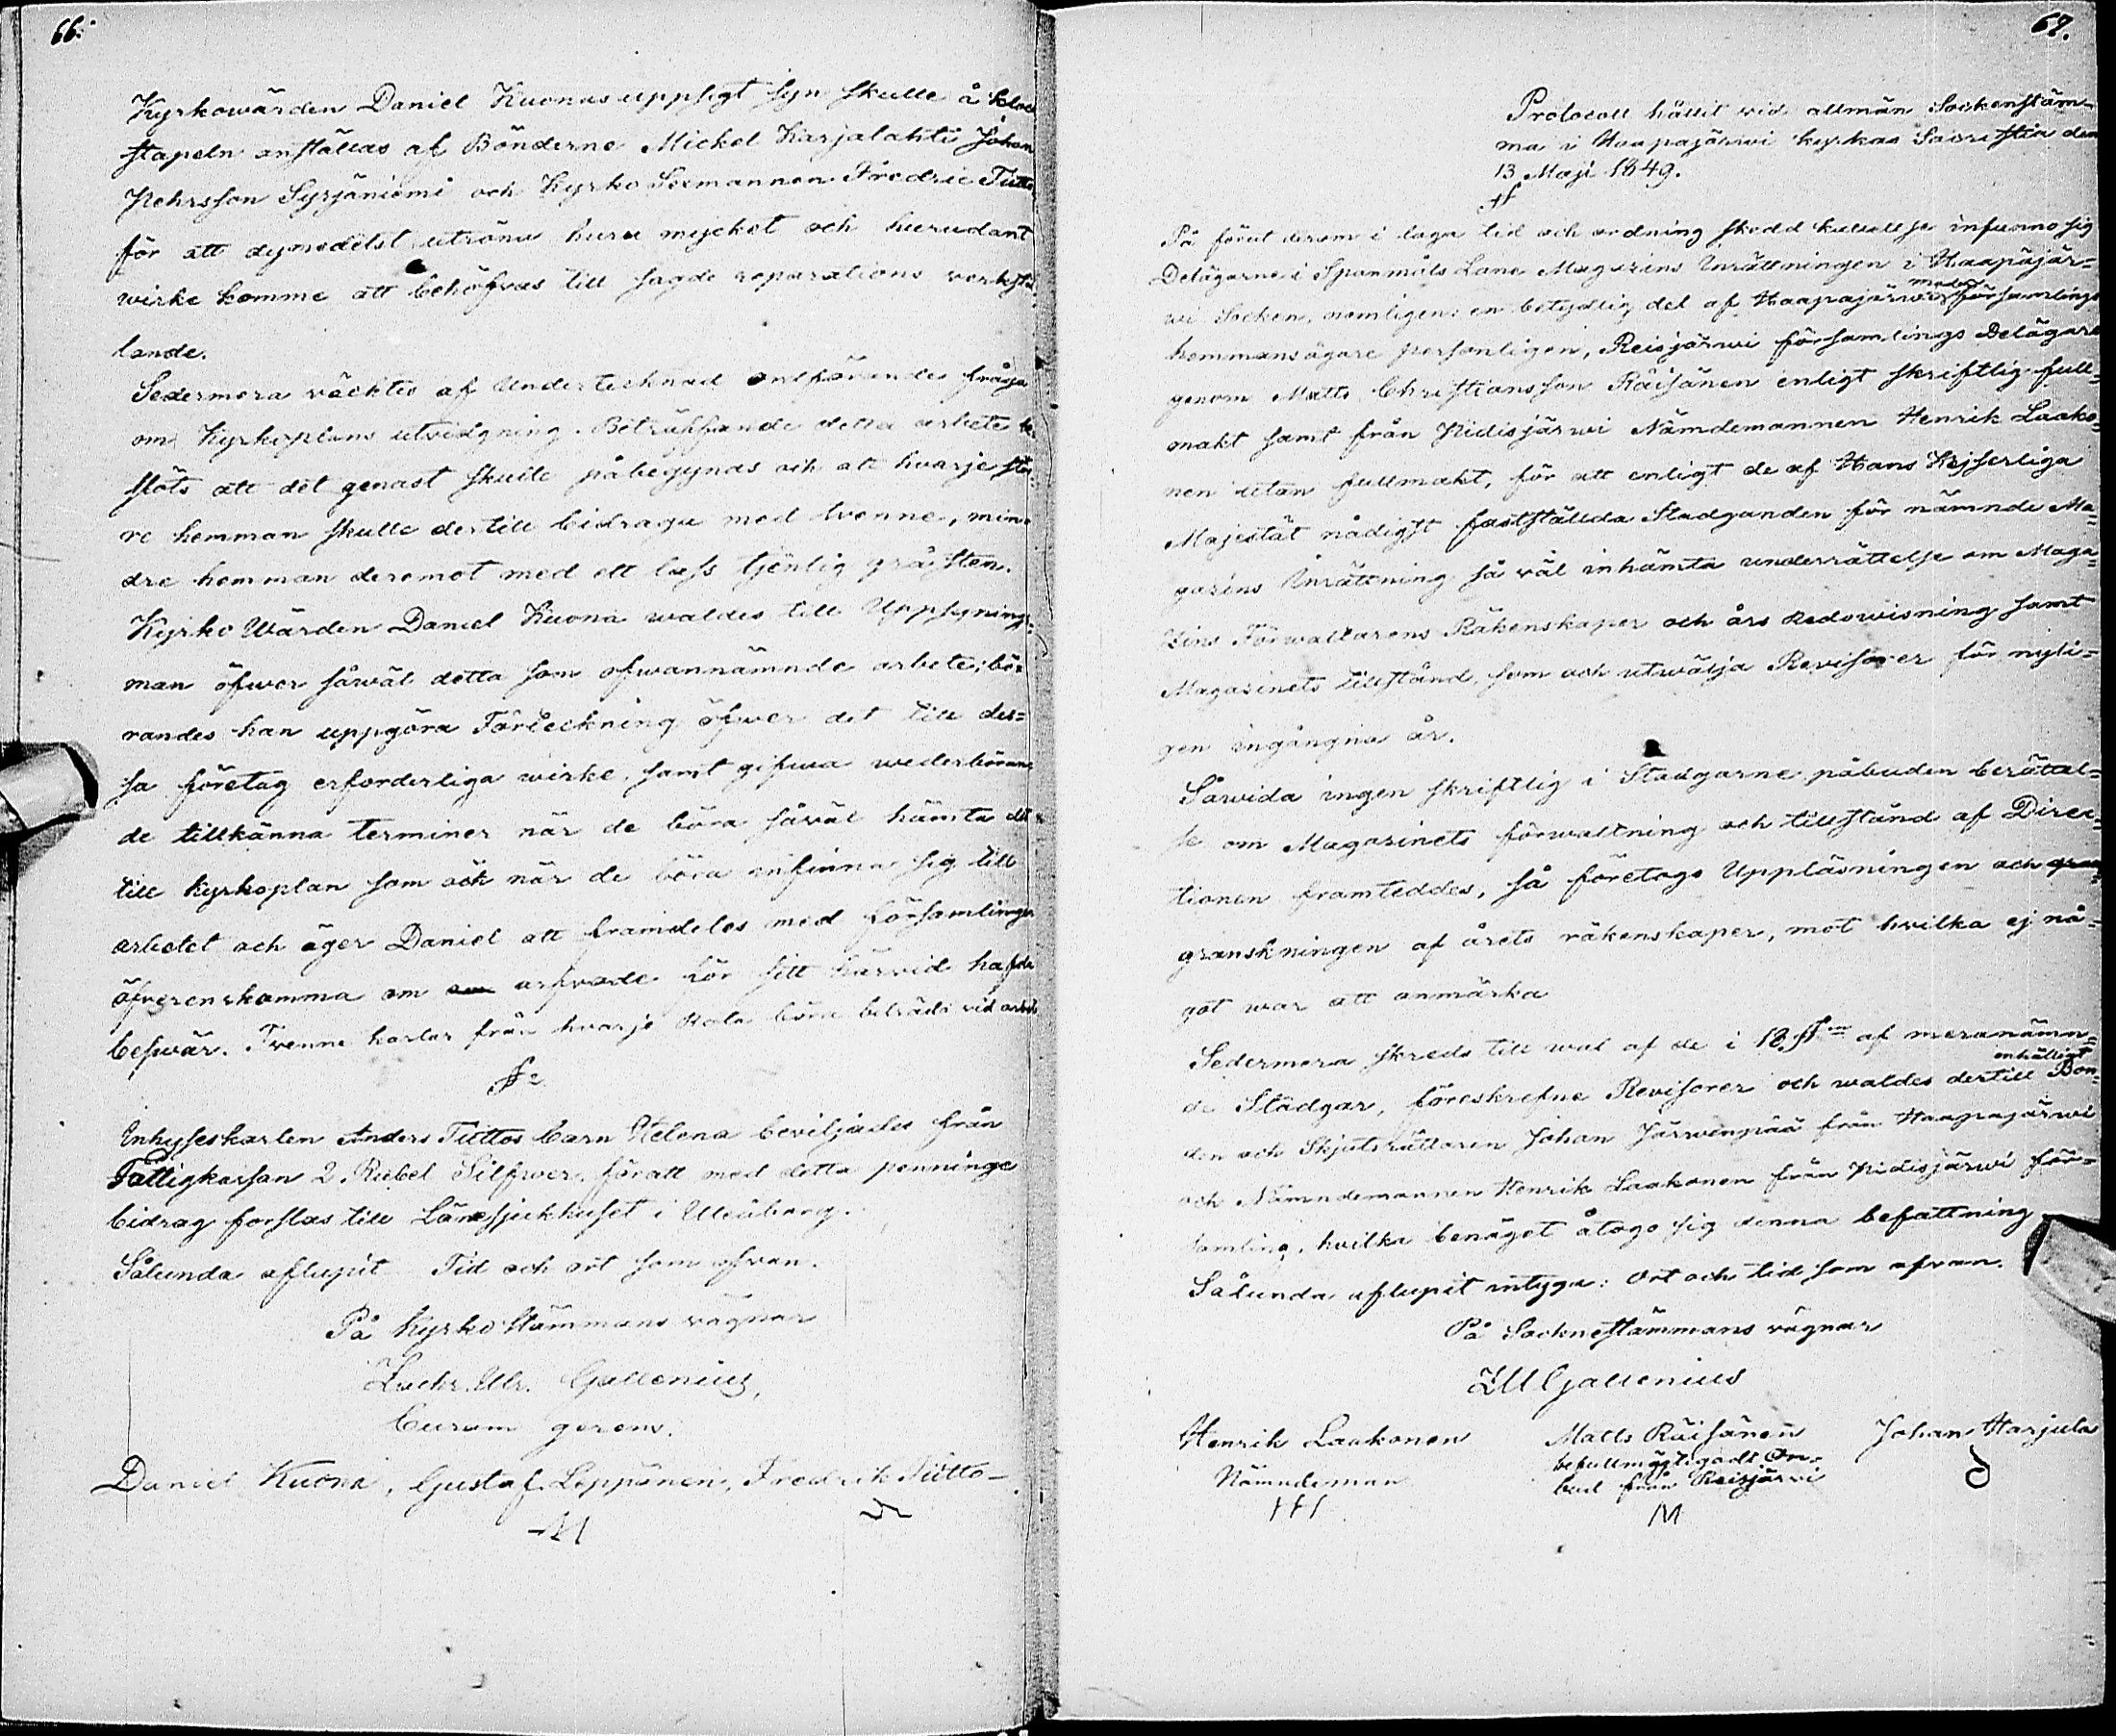 66.
Kyrkowärden Daniel Kuonas uppsigt syn skulle å klock
stapeln anställas af Bönderne Mickel Karjalahti Johan
Pehrsson Syrjäniemi och Kyrko Sexmannen Fredric Tiitto
för att dymedelst utröna huru mycket och hurudant
wirke komme att behöfvas till sagde reparations verkstäl
lande.
Sedermera väcktes af Undertecknad Ordförande fråga
om Kyrkoplans utvidgning. Beträffande detta arbete be
slöts att det genast skulle påbegynas och att hvarje stör
re hemman skulle dertill bidraga med tvenne, min
dre hemman deremot med ett lass tjenlig gråsten.
Kyrko Wärden Daniel Kuona waldes till Uppsynings
man öfwer såwäl detta som ofwannämnde arbete; bö=
randes han uppgöra Förteckning öfwer det till des=
sa företag erforderliga wirke, samt gifwa wederböran
de tillkänna terminer när de böra såväl hämta det
till kyrkoplan som ock när de böra infinna sig till
arbetet och äger Daniel att framdeles med församlingen
öfverenskomma om arfvode för sitt härvid hafde
beswär. Tvenne karlar från hvarje Rota böra biträda vid arbete
§ 2
Inhyseskarlen Anders Tiittos barn Helena beviljades från
Fattigkassan 2 Rubel Silfwer, för att med detta penninge
bidrag forslas till Länesjukhuset i Uleåborg.
Sålunda aflupit Tid och ort som ofvan.
På Kyrko Stämmans vägnar
Zachr. Ulr. Gallenius,
Curam gerens.
Daniel Kuona, Gustaf Leppänen, Fredrik Tiitto
M
67.
Protocoll hållit vid allmän Sockenstäm=
ma i Haapajärwi kyrkas Sacristia den
13 Maji 1849.
§
På förut derom i laga tid och ordning skedd kallelse infunno sig
Delägarne i Spanmåls Lane Magazins Inrättningen i Haapajär=
wi Socken, nemligen: en betydlig del af Haapajärwi moder församlings
hemmansägare personligen, Reisjärwi församlings Delägare
genom Matts Christiansson Räisänen enligt skriftlig full=
makt samt från Pidisjärwi Nämdemannen Henrik Laako=
nen utan fullmakt, för att enligt de af Hans Kejserliga
Majestät nådigst fastställda Stadganden för nämnde Ma=
gasins Inrättning så väl inhämta underrättelse om Maga=
zins Förwaltarens Räkenskaper och års redowisning samt
Magasinets tillstånd, som och utwälja Revisorer för nyli=
gen ingångna år.
Såvida ingen skriftlig i Stadgarne påbuden berättel=
se om Magasinets förwaltning och tillstånd af Direc=
tionen framteddes, så företogs Uppläsningen och gran
granskningen af årets räkenskaper, mot hvilka ej nå=
got war att anmärka
Sedermera skreds till wal af de i 18 §en af meranämn=
de Stadgar, föreskrefne Revisorer och waldes dertill enhälligt Bon=
den och Skjutsrättaren Johan Järwenpää från Haapajärwi
och Nämndemannen Henrik Laakonen från Pidisjärwi för=
samling, hvilka benäget åtogo sig denna befattning
Sålunda aflupit intyga: Ort och tid som ofvan.
På Sockne Stämmans vägnar
ZUGallenius
Henrik Laakonen
Nämndeman
HH
Matts Räisänen
befullmägtigadt Om=
bud från Reisjärvi
M
Johan Harjula